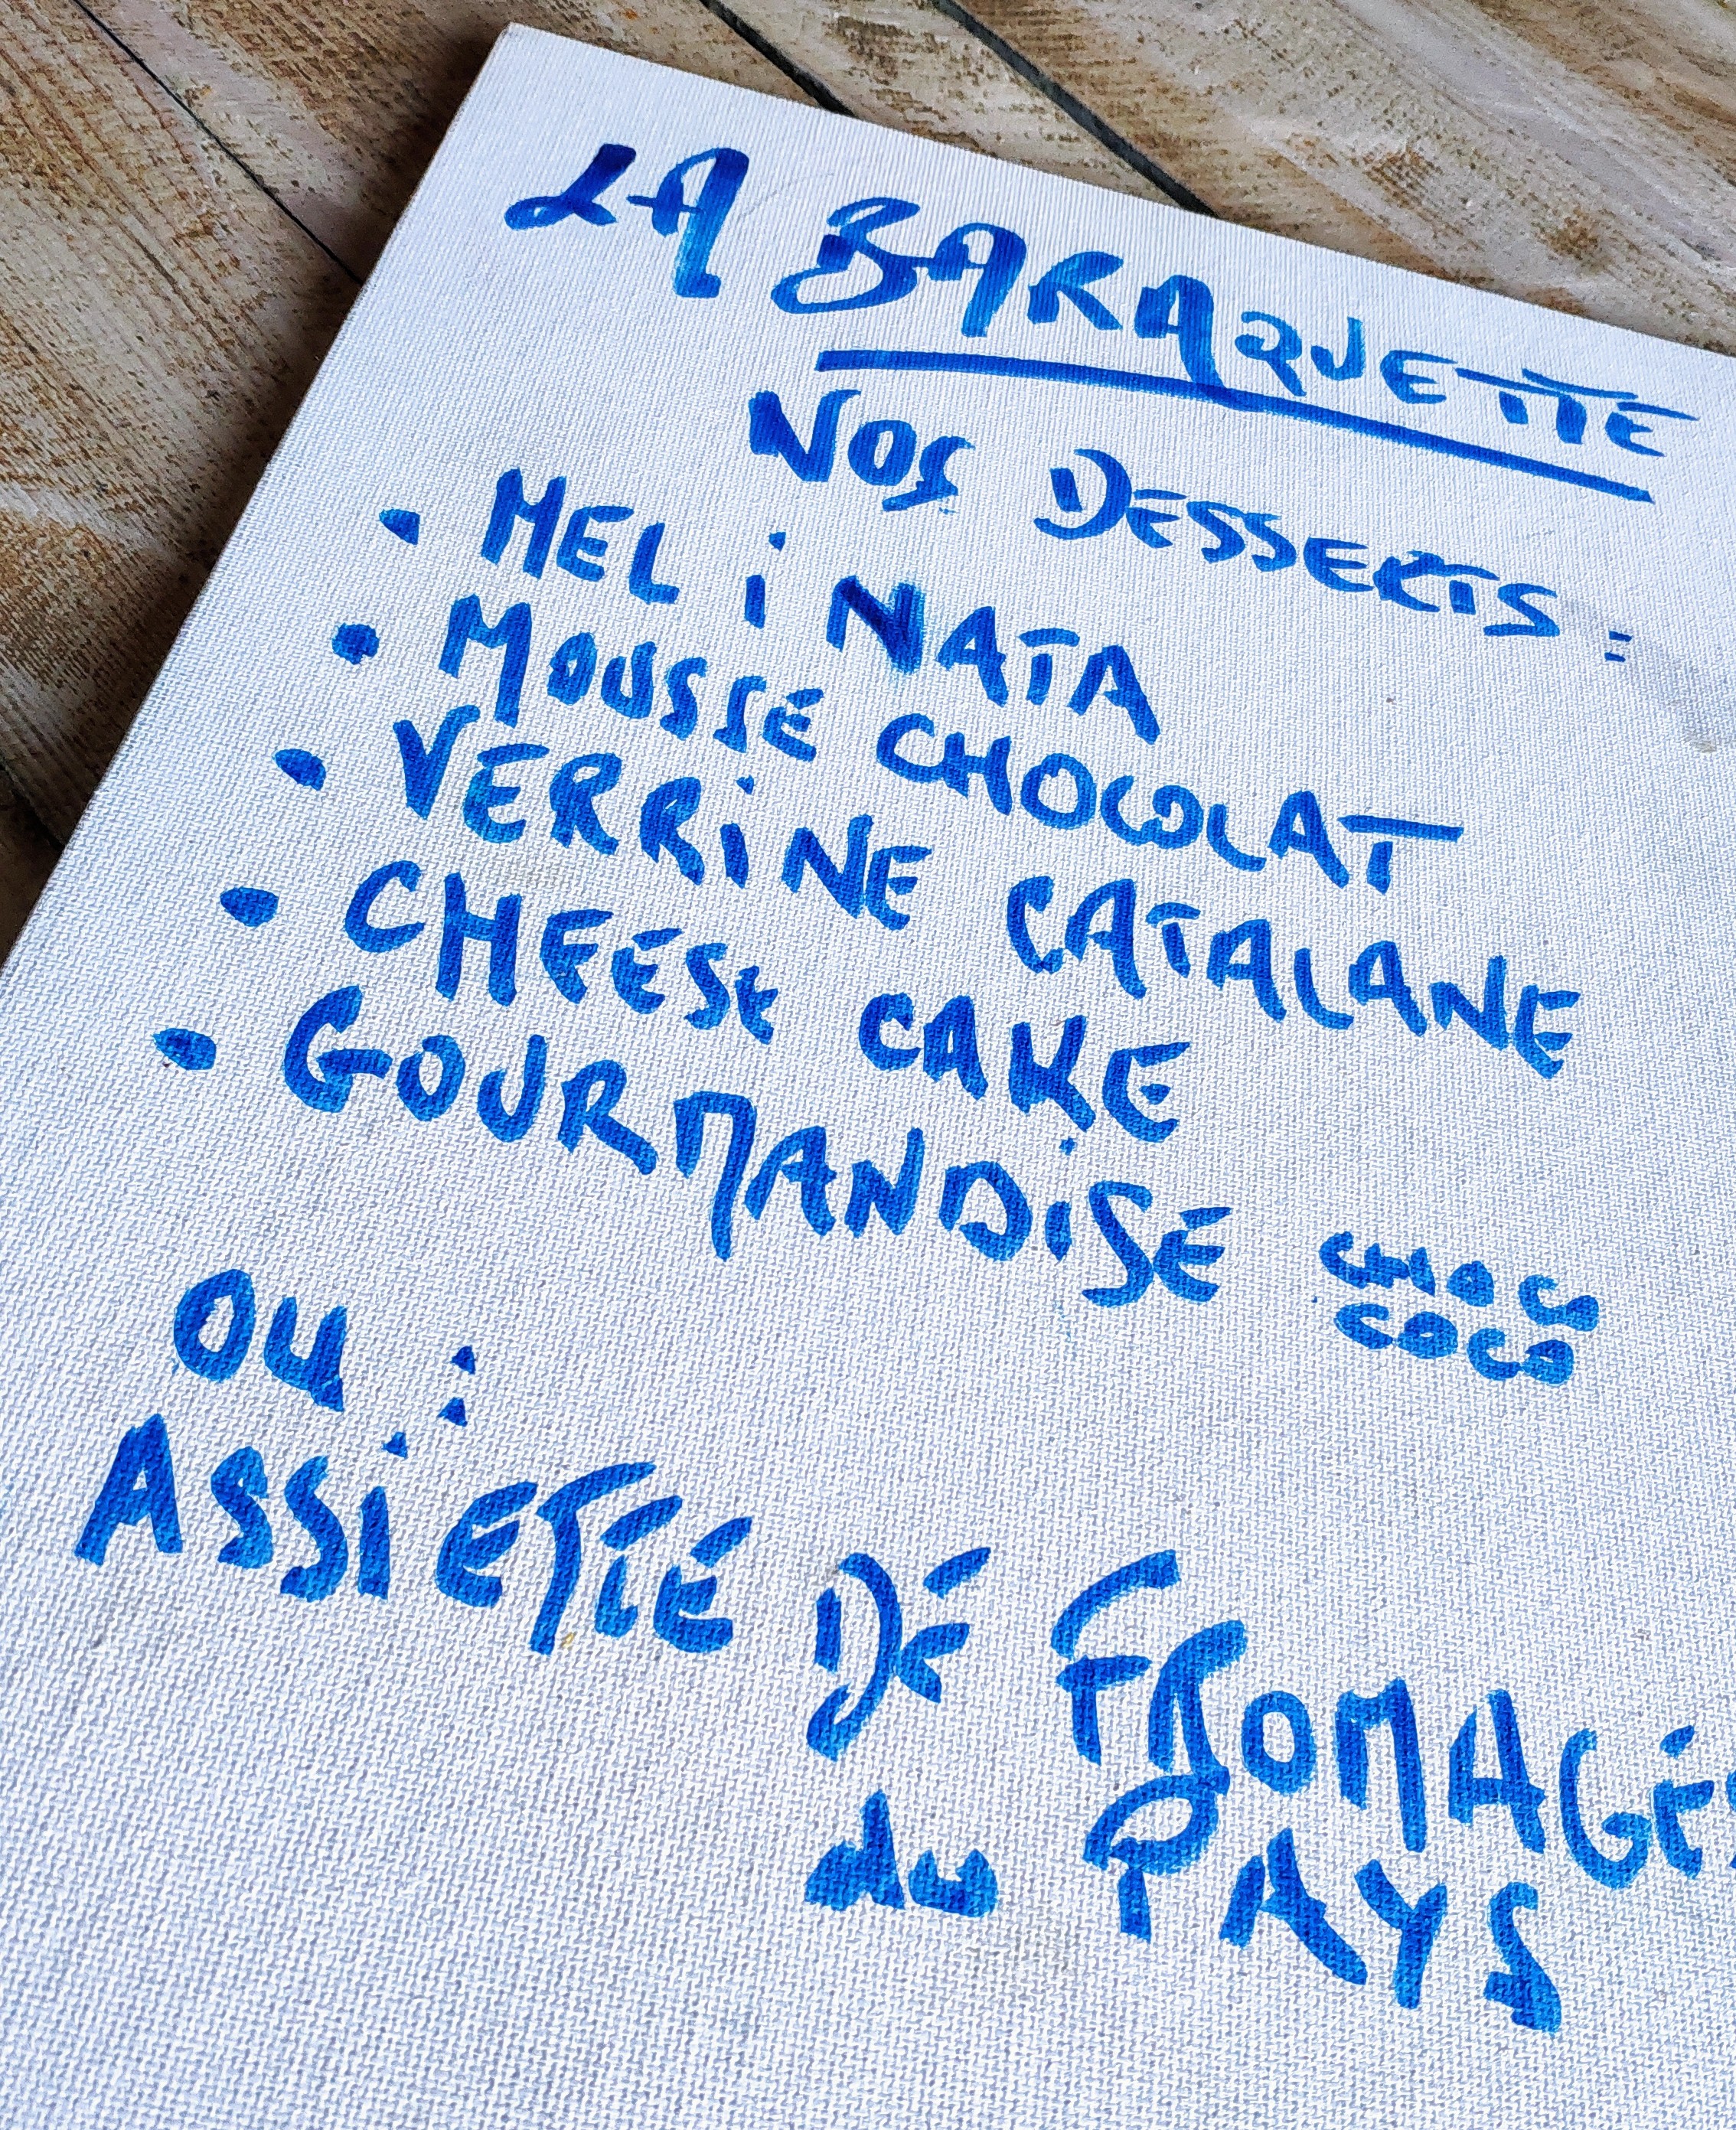 LA BARAQUETTE
NOS DESSERTS :
• MEL i NATA
• MOUSSE CHOCOLAT
• VERRiNE CATALANE
• CHEESE CAKE
• GOURMANDiSE CHOC
COCO
OU :
ASSiETTE DE FROMAGES
du PAYS